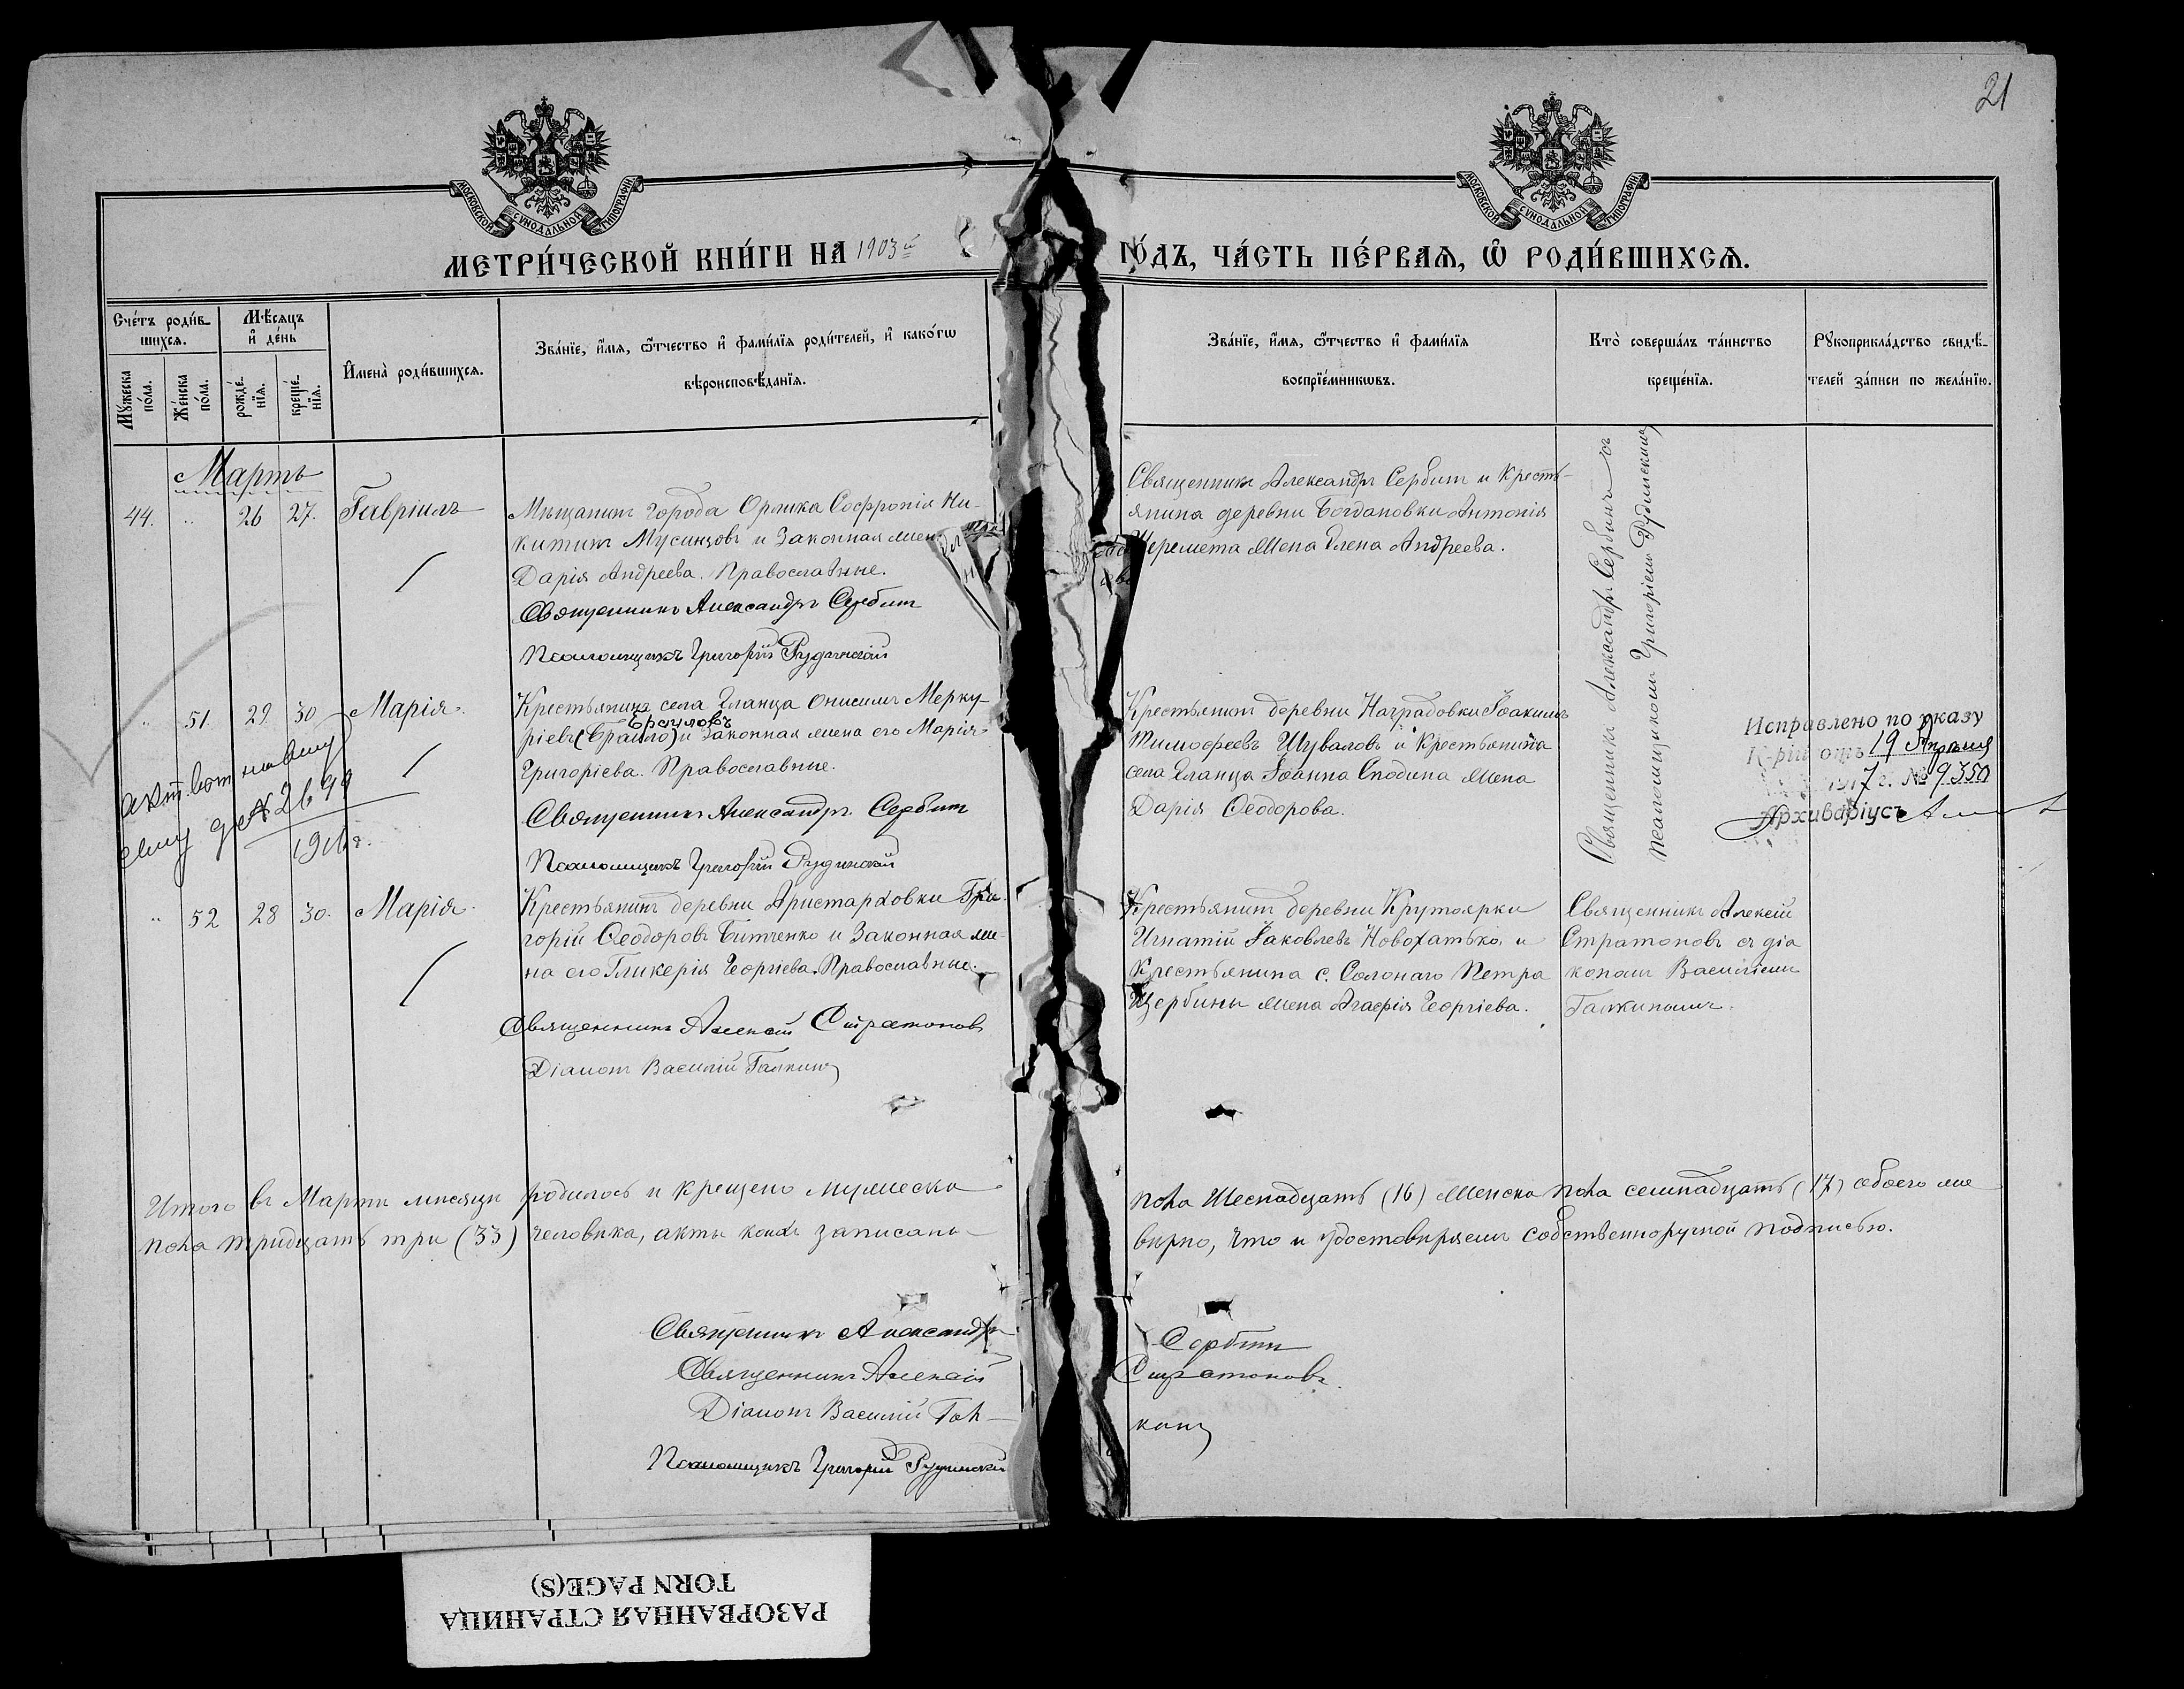 21
МОСКОВСКОЙ СУНОДАЛЬНОЙ ТИПОГРАФІИ
МОСКОВСКОЙ СУНОДАЛЬНОЙ ТИПОГРАФІИ
МЕТРИ́ЧЕСКОЙ КНИ́ГИ НА 1903й
ГО́ДЪ, ЧА́СТЬ ПЕ́РВАѦ, Ѡ РОДИ́ВШИХСѦ.
Сче́тъ роди́в-
шихсѧ.
Мѣ́сѧцъ
и҆ де́нь
Мꙋжеска
по́ла.
Же́нска
по́ла.
рожде́-
нїѧ.
креще́-
нїѧ.
И҆мена̀ роди́вшихсѧ.
Зва́нїе, и҆́мѧ, ѻ҆́тчество и҆ фамі́лїѧ роди́телей, и҆ како́гѡ
вѣроисповѣ́данїѧ.
Зва́нїе, и҆́мѧ, ѻ҆́тчество и҆ фамі́лїѧ
воспрїе́мникѡвъ.
Кто̀ соверша́лъ та́инство
креще́нїѧ.
Рꙋкоприкла́дство свидѣ́-
телей за́писи по жела́нїю.
Мартъ
44. „ 26 27. Гавріилъ
Мѣщанинъ города Орлика Софроній Ни-
китинъ Мусинцовъ и законная жен
Дарія Андреева. Православные.
Священникъ Александръ Сербинъ
Псаломщикъ Григорій Рудинскій
Священникъ Александръ Сербинъ и Кресть-
янина деревни Богдановки Антонія
Шеремета жена Елена Андреева.
Священникъ Александръ Сербинъ съ
псаломщикомъ Григоріемъ Рудинскимъ
„ 51. 29 30 Марія
Крестьянинъ села Гланца Онисимъ Мерку-
Браиловъ
ріевъ (Браило) и законная жена его Марія
Григоріева. Православные.
Священникъ Александръ Сербинъ
Псаломщикъ Григорій Рудинскій
Крестьянинъ деревни Наградовки Іоакимъ
Тимофеевъ Шуваловъ и Крестьянина
села Гланца Іоанна Сподина жена
Дарія Ѳеодорова.
Исправлено по указу
К-ріи отъ 19 Апрѣля
1917 г. № 9350
Архиваріусъ
№ 2690
„ 52 28 30. Марія
Крестьянинъ деревни Аристарховки Гри-
горій Ѳеодоровъ Битченко и законная же-
на его Гликерія Георгіева. Православные.
Священникъ Алексій Стратоновъ
Діаконъ Василій Галкинъ
Крестьянинъ деревни Крутоярки
Игнатій Іаковлевъ Новохатько и
Крестьянина с. Солонаго Петра
Щербины жена Агафія Георгіева.
Священникъ Алексій
Стратоновъ съ діа
кономъ Василіемъ
Галкинымъ.
Итого въ Мартѣ мѣсяцѣ родилось и крещено мужеска
пола Шеснадцать (16) женска пола семнадцать (17) обоего же
пола тридцать три (33) человѣка, акты коихъ записаны
вѣрно, что и удостовѣряемъ собственноручной подписью.
Священникъ Александръ Сербинъ
Священникъ Алексій Стратоновъ
Діаконъ Василій Галкинъ
Псаломщикъ Григорій Рудинскій
РАЗОРВАННАЯ СТРАНИЦА
TORN PAGE(S)